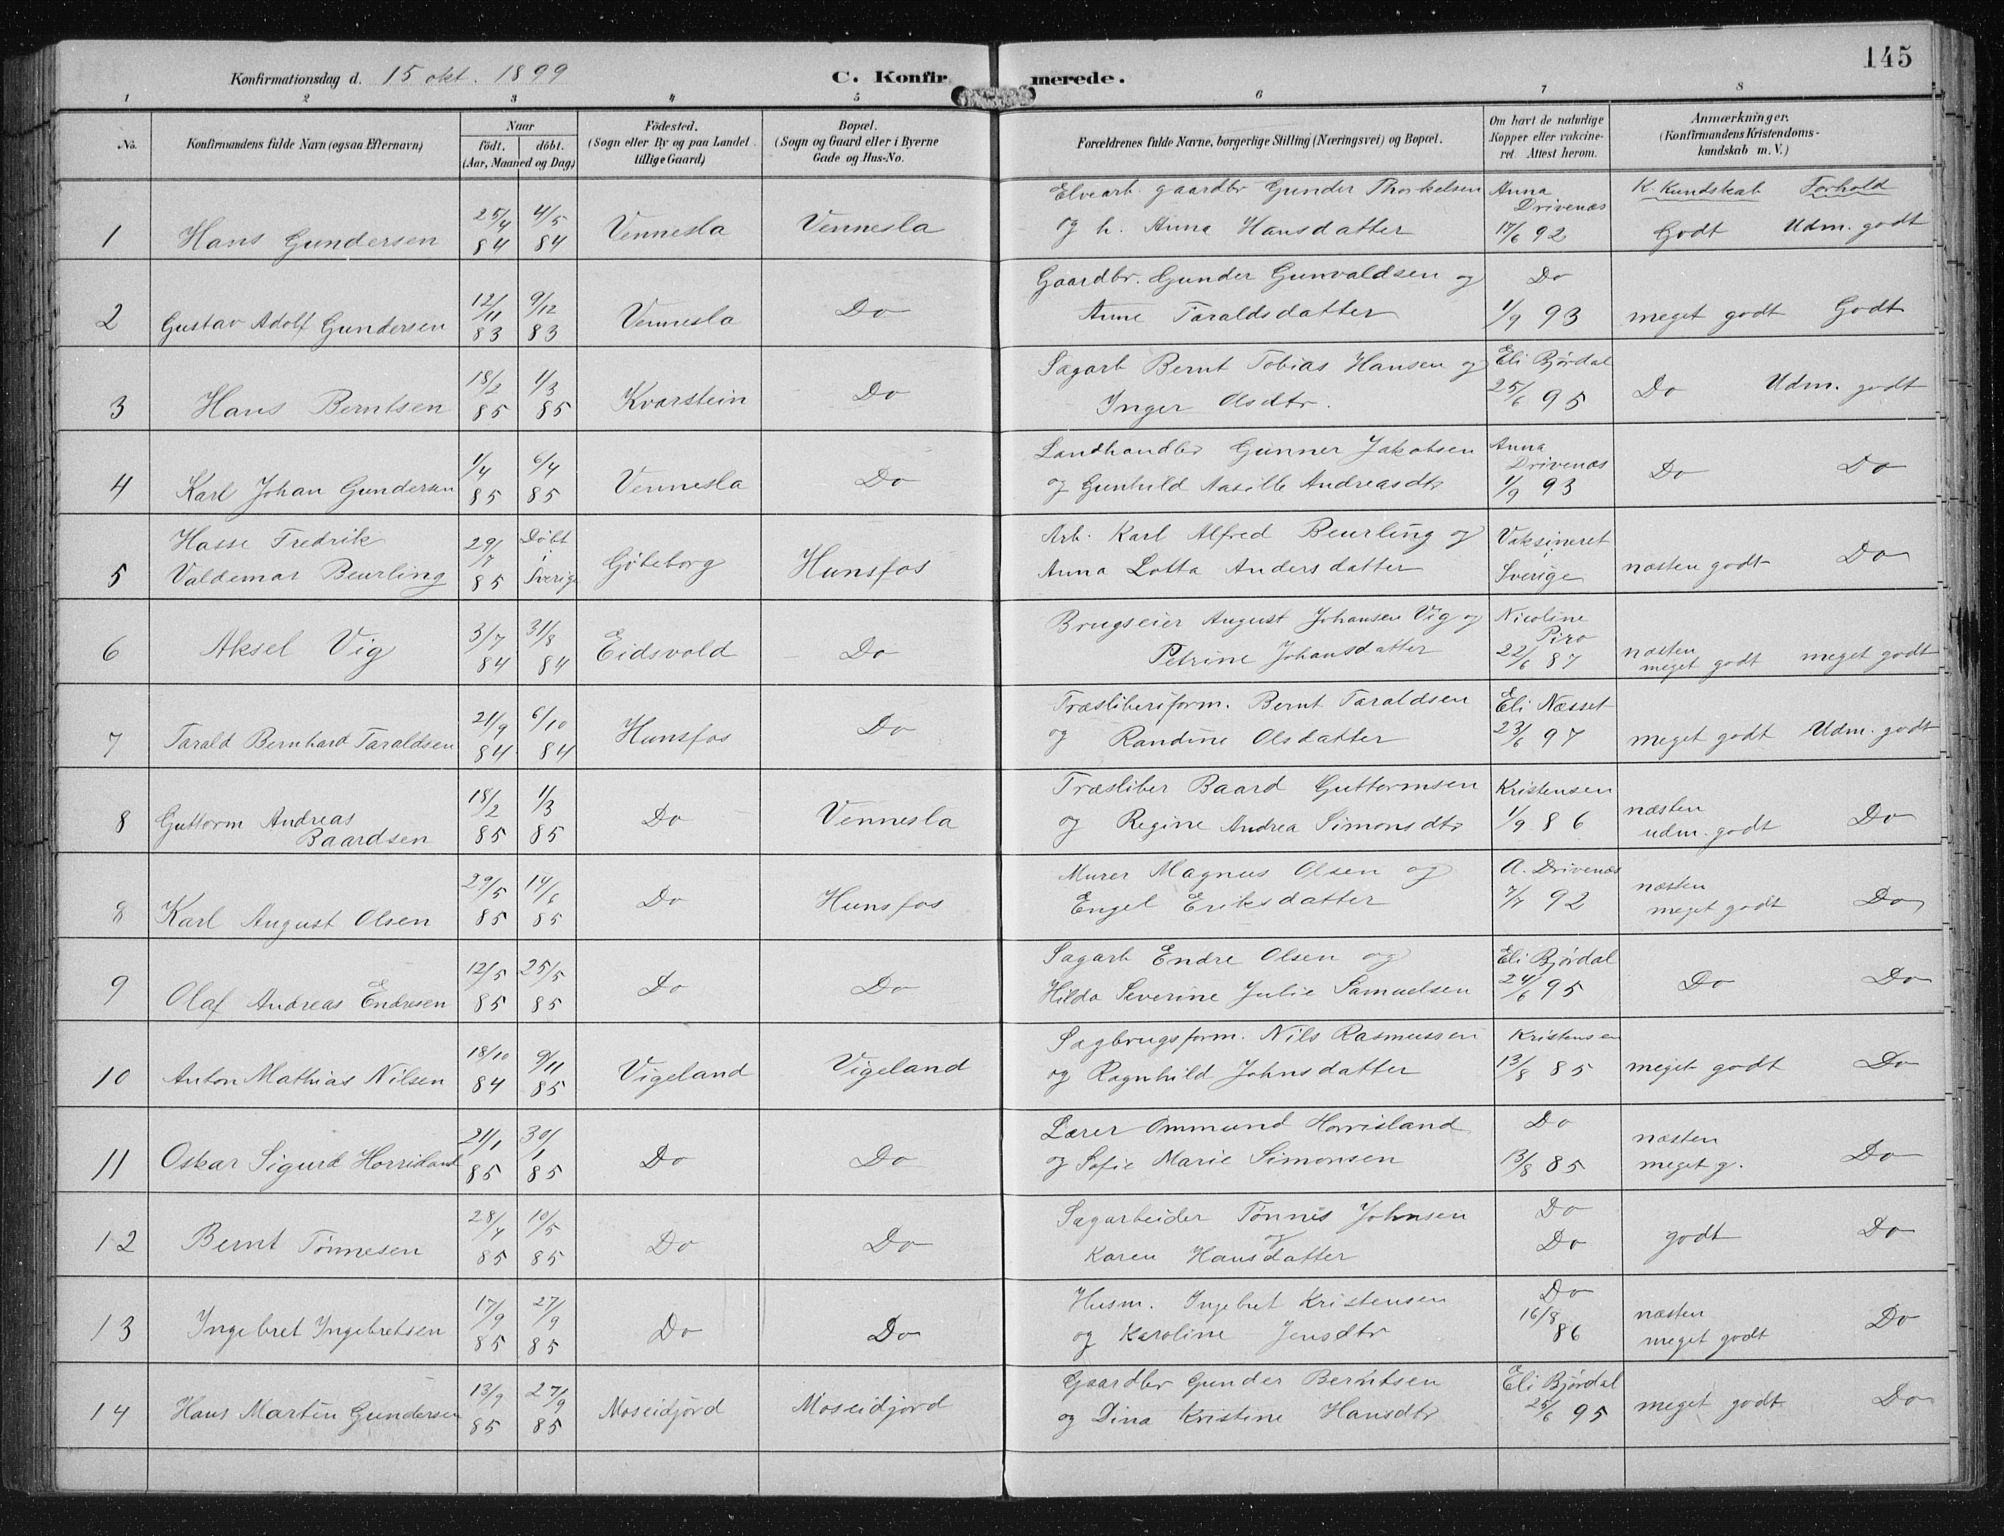 145
Konfirmationsdag d. 15 okt. 1899
C. Konfirmerede.
1 2 3 4 5 6 7 8
No. Konfirmandens fulde Navn (ogsaa Efternavn) Naar födt. döbt. (Aar, Maaned og Dag) Födested. (Sogn eller By og paa Landet tillige Gaard) Bopæl. (Sogn og Gaard eller i Byerne Gade og Hus-No. Forældrenes fulde Navne, borgerlige Stilling (Næringsvei) og Bopæl. Om havt de naturlige Kopper eller vakcineret Attest herom. Anmærkninger. (Konfirmandens Kristendomskundskab m. V.)
K. Kundskab Forhold
1 Hans Gundersen 25/4 84 4/5 84 Vennesla Vennesla Elvearb. gaardbr Gunder Thorkelsen
og h. Anna Hansdatter Anna Drivenæs 17/6 92 Godt Udm. godt
2 Gustav Adolf Gundersen 12/11 83 9/12 83 Vennesla Do Gaardbr. Gunder Gunvaldsen og
Anne Taraldsdatter Do 1/9 93 meget godt Godt
3 Hans Berntsen 18/2 85 1/3 85 Kvarstein Do Sagarb Bernt Tobias Hansen og
Inger Olsdtr. Eli Bjørdal 25/6 95 Do Udm. godt
4 Karl Johan Gundersen 1/4 85 6/4 85 Vennesla Do Landhandler Gunner Jakobsen
og Gunhild Andreasdtr Anna Drivenæs 1/9 93 Do Do
5 Hasse Fredrik
Valdemar Beurling 29/7 85 Døbt i Sverige Göteborg Hunsfos Arb. Karl Alfred Beurling og
Anna Lotta Andersdatter Vaksineret i Sverige næsten godt Do
6 Aksel Vig 3/7 84 31/8 84 Eidsvold Do Brugseier August Johansen Vig og
Petrine Johansdatter Nicoline Piro 22/6 87 næsten meget godt meget godt
7 Tarald Bernhard Taraldsen 21/9 84 6/10 84 Hunsfos Do Træsliberiform. Bernt Taraldsen
og Randine Olsdatter Eli Næsset 23/6 97 meget godt Udm. godt
8 Guttorm Andreas
Baardsen 18/2 85 1/3 85 Do Vennesla Træsliber Baard Guttormsen
og Regine Andrea Simonsdtr Kristensen 1/9 86 næsten udm. godt Do
8 Karl August Olsen 29/5 85 14/6 85 Do Hunsfos Murer Magnus Olsen og
Engel Eriksdatter A. Drivenæs 7/7 92 næsten meget godt Do
9 Olaf Andreas Endresen 12/5 85 25/5 85 Do Do Sagarb Endre Olsen og
Hilda Severine Julie Samuelsen Eli Bjørdal 24/6 95 Do Do
10 Anton Mathias Nilsen 18/10 84 9/11 85 Vigeland Vigeland Sagbrugsform. Nils Rasmussen
og Ragnhild Johnsdatter Kristensen 13/8 85 meget godt Do
11 Oskar Sigurd Horrisland 21/1 85 30/1 85 Do Do Lærer Ommund Horrisland
og Sofie Marie Simonsen Do 13/8 85 næsten meget g. Do
12 Bernt Tønnesen 28/4 85 10/5 85 Do Do Sagarbeider Tønnis Johnsen
og
Karen Hansdatter Do Do godt Do
13 Ingebret Ingebretsen 17/9 85 27/9 85 Do Do Husm. Ingebret Kristensen
og Karoline Jensdtr Do 16/8 86 næsten meget godt Do
14 Hans Martin Gundersen 13/9 85 27/9 85 Moseidjord Moseidjord Gaardbr Gunder Berntsen
og Dina Kristine Hansdtr Eli Bjørdal 25/6 95 meget godt Do